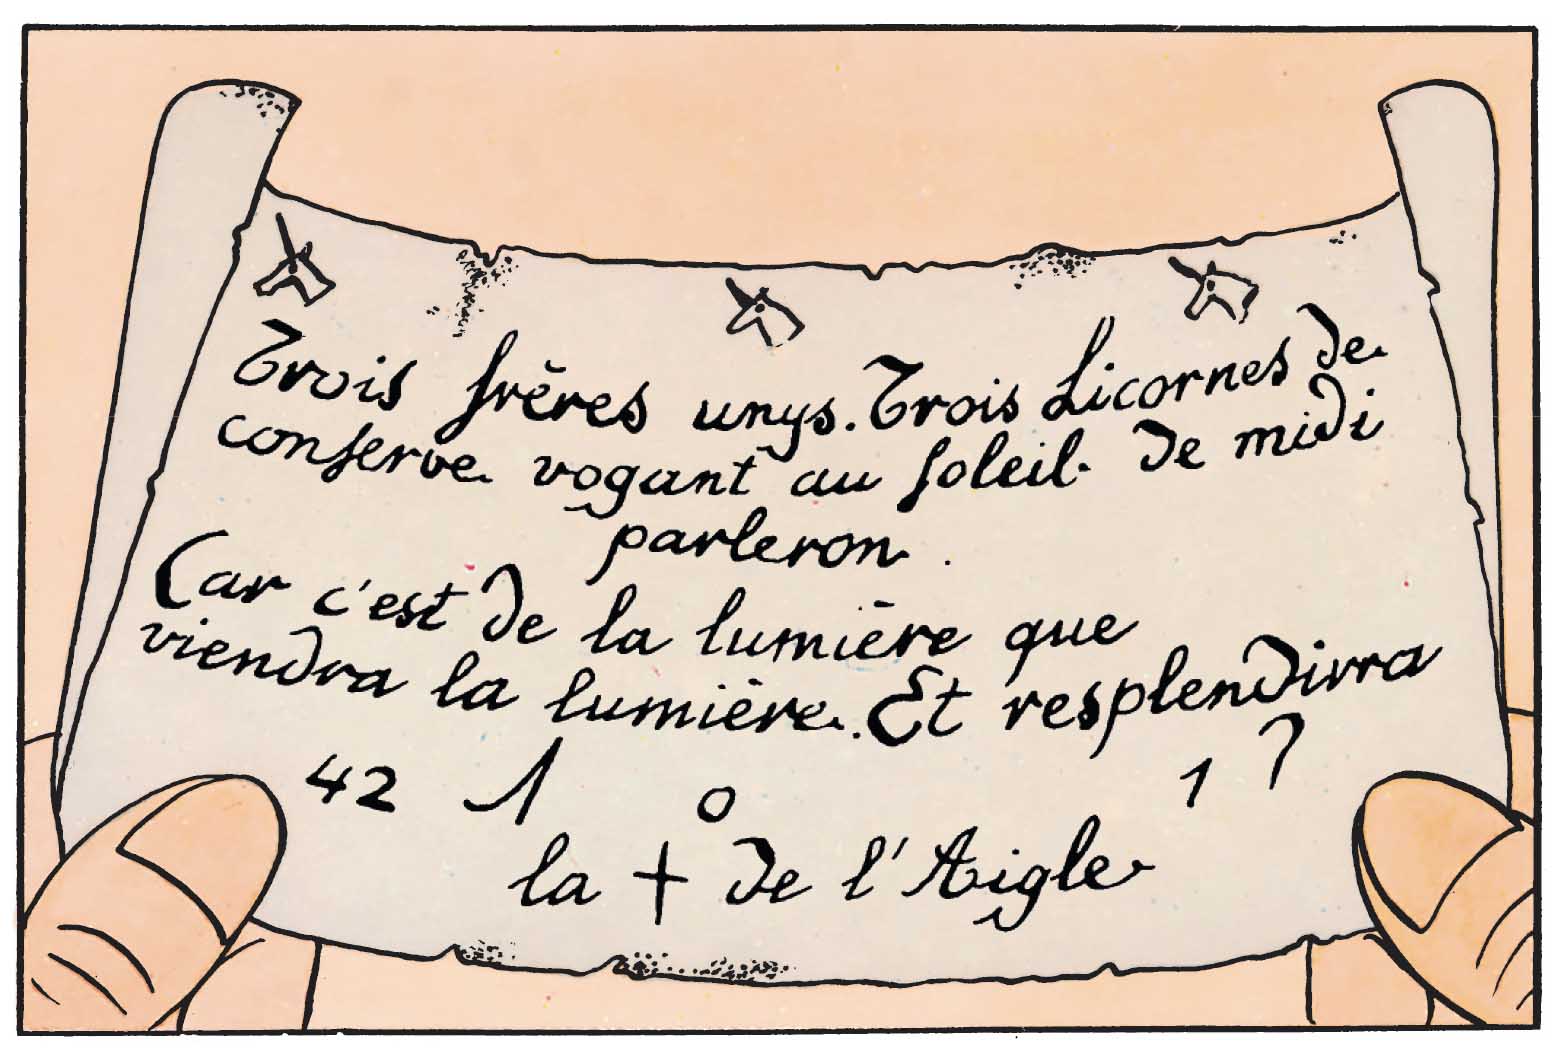 Trois frères unys. Trois Licornes de
conserve voguant au soleil de midi
parleron
Car c'est de la lumière que
viendra la lumière. Et resplendira
42 1 0 1 ?
la + de l'Aigle